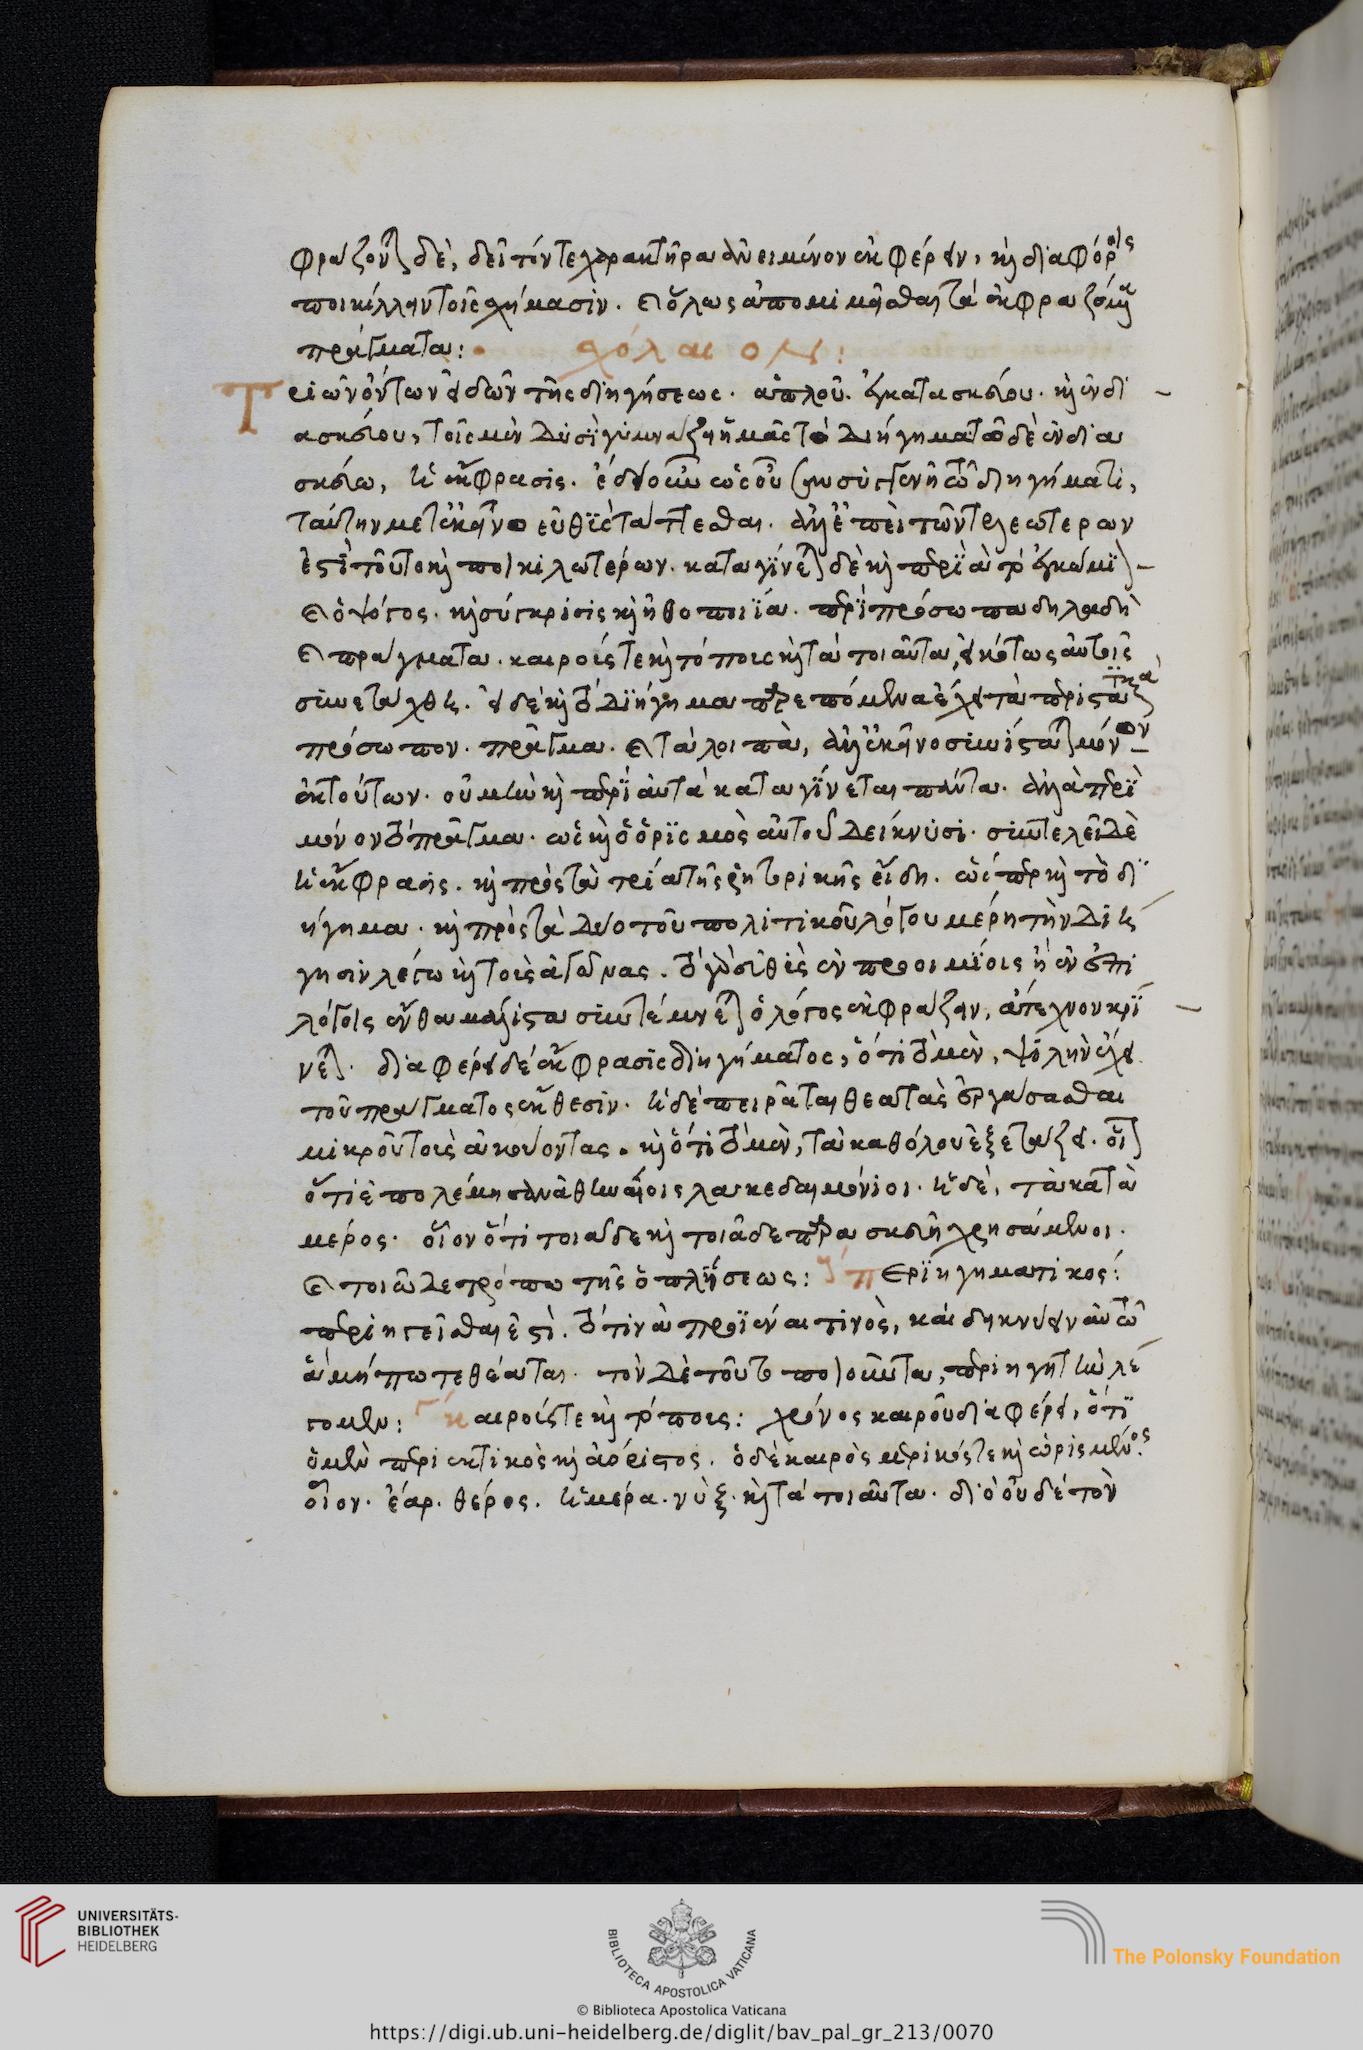 φράζοντας δὲ, δεῖ τόν τε χαρακτῆρα ἀνειμένον ἐκφέρειν, καὶ διαφόροις
ποικίλλειν τοῖς σχήμασιν. καὶ ὅλως ἀπομιμεῖσθαι τὰ ἐκφραζόμενα
πράγματα:
σχόλαιον:
Τριῶν ὄντων εἰδῶν τῆς διηγήσεως. ἁπλοῦ. ἐγκατασκεύου. καὶ ἐνδι
ασκεύου, τοῖς μὲν δυσὶ γυμνάζει ἡμᾶς τὸ διήγημα τῷ δὲ ἐνδια
σκεύω, ἡ ἔκφρασις.
ταύτην μετ' ἐκεῖνο εὐθὺς τάττεσθαι. ἀλλ' ἐπεὶ τῶν τελεωτέρων
ἐστὶ τοῦτο καὶ ποικιλωτέρων. καταγίνεται δὲ καὶ περὶ ἃ τὸ ἐγκώμι
καὶ ὁ ψόγος. καὶ σύγκρισις καὶ ἠθοποιΐα. περὶ πρόσωπα δηλαδὴ
καὶ πράγματα. καιρούς τε καὶ τόπους καὶ τὰ τοιαῦτα, εἰκότως αὐτοῖς
συνετάχθη. εἰ δὲ καὶ τὸ διήγημα παρεπόμενα ἔχει τὰ περιστατικὰ
πρόσωπον. πρᾶγμα. καὶ τὰ λοιπὰ, ἀλλ' ἐκεῖνο συνίσταται μόνον
ἐκ τούτων. οὐ μὴν καὶ περὶ αὐτὰ καταγίνεται πάντα. ἀλλὰ περὶ
μόνον τὸ πρᾶγμα. ὡς καὶ ὁ ὁρισμὸς αὐτοῦ δείκνυσι. συντελεῖ δὲ
ἡ ἔκφρασις. καὶ πρὸς τὰ τρία τῆς ῥητορικῆς εἴδη. ὥσπερ καὶ τὸ δι
ήγημα. καὶ πρὸς τὰ δύο τοῦ πολιτικοῦ λόγου μέρη τὴν διή
γησιν λέγω καὶ τοὺς ἀγῶνας. τὸ γὰρ εὐθὺς ἐν προοιμίοις ἢ ἐν ἐπι
λόγοις ἔνθα μάλιστα συντέμνεται ὁ λόγος ἐκφράζειν, ἄτεχνον κρί
νεται. διαφέρει δὲ ἔκφρασις διηγήματος, ὅτι τὸ μὲν, ψιλὴν ἔχει
τοῦ πράγματος ἔκθεσιν. ἡ δὲ πειρᾶται θεατὰς ἐργάσασθαι
μικροῦ τοὺς ἀκούοντας. καὶ ὅτι τὸ μὲν, τὰ καθόλου ἐξετάζει. οἷον
ὅτι ἐπολέμησαν ἀθηναίοις λακεδαιμόνιοι. ἡ δὲ, τὰ κατὰ
μέρος. οἷον ὅτι τοιᾷδε καὶ τοιᾷδε παρασκευῇ χρησάμενοι.
καὶ τοιῷδε τρόπῳ τῆς ὁπλίσεως: Περιηγηματικός:
περιηγεῖσθαι ἐστὶ. τό τινα προϊέναι τινὸς, καὶ δεικνύειν αὐτῷ
ἃ μήπω τεθέαται. τὸν δὲ τοῦτο ποιοῦντα, περιηγητὴν λέ
γομεν: καιρούς τε καὶ τόπους: χρόνος καιροῦ διαφέρει, ὅτι
ὁ μὲν περιεκτικὸς καὶ ἀόριστος. ὁ δὲ καιρὸς μερικός τε καὶ ὡρισμένος.
οἷον. ἔαρ. θέρος. ἡμέρα. νὺξ. καὶ τὰ τοιαῦτα. διὸ οὐδὲ τὸν
UNIVERSITÄTS-
BIBLIOTHEK
HEIDELBERG
BIBLIOTECA APOSTOLICA VATICANA
The Polonsky Foundation
© Biblioteca Apostolica Vaticana
https://digi.ub.uni-heidelberg.de/diglit/bav_pal_gr_213/0070